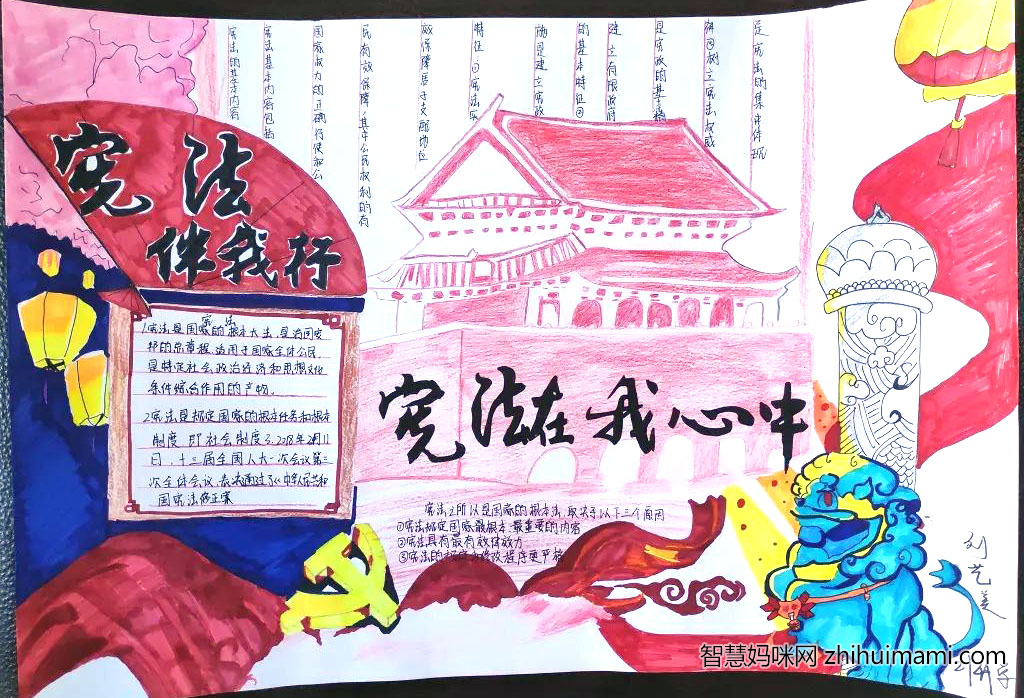 宪法
伴我行
宪法
1.宪法是国家的根本大法,是治国安
邦的总章程,适用于国家全体公民,
是特定社会政治经济和思想文化
条件综合作用的产物。
2.宪法是规定国家的根本任务和根本
制度,即社会制度
日,十三届全国人大一次会议第三
次全体会议,表决通过了《中华人民共和
国宪法修正案
宪法的基本内容
宪法基本内容包括
国家权力的正确行使和公
民有效保障,其中公民权利的有
效保障居于支配地位
特征:①宪法实
施是建立宪政
的基本特征②
建立有限政府
是宪政的基本精
神③树立宪法权威
是宪法的集中体现
宪法在我心中
宪法之所以是国家的根本法,取决于以下三个原因
①宪法规定国家最根本、最重要的内容
②宪法具有最有效律效力
③宪法的制定和修改程序更严格
刘艺美
智慧妈咪网 zhihuimami.com